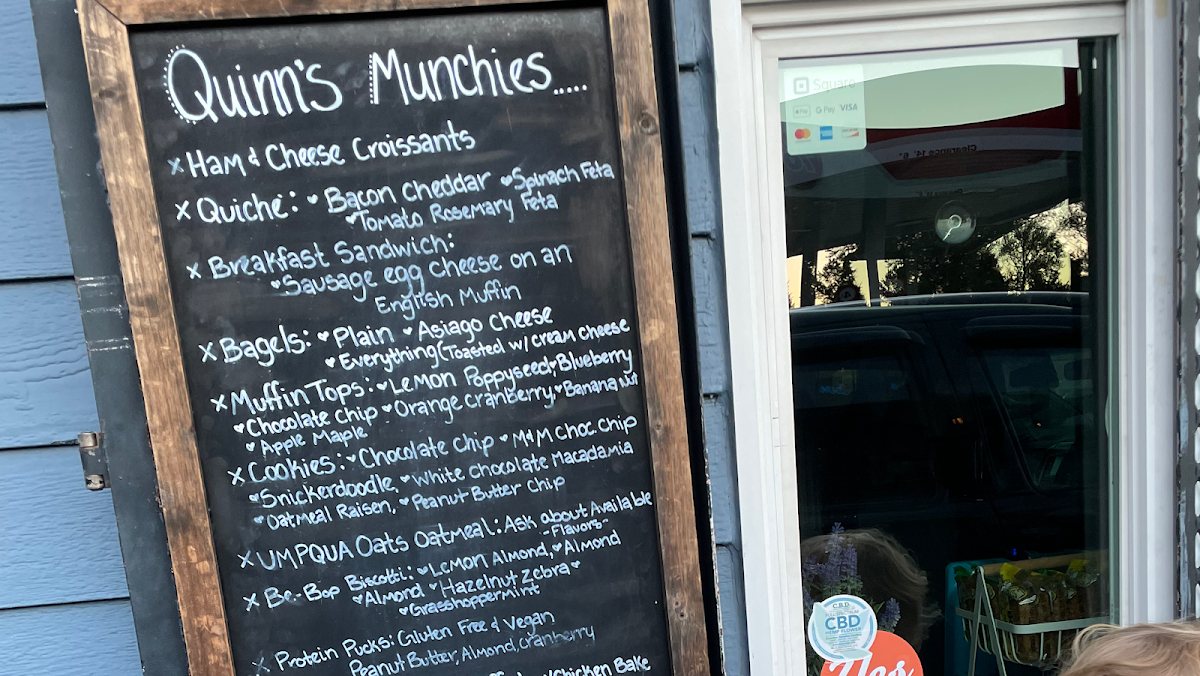 Quinn's Munchies.....
x Ham & Cheese Croissants
x Quiche: ♥ Bacon Cheddar ♥ Spinach Feta
♥ Tomato Rosemary Feta
x Breakfast Sandwich:
♥ Sausage egg cheese on an
English Muffin
x Bagels: ♥ Plain ♥ Asiago Cheese
♥ Everything (Toasted w/ cream cheese
x Muffin Tops: ♥ Lemon Poppyseed ♥ Blueberry
♥ Chocolate Chip ♥ Orange Cranberry, ♥ Banana Nut
♥ Apple Maple
x Cookies: ♥ Chocolate Chip ♥ M&M Choc. Chip
♥ Snickerdoodle, ♥ White Chocolate Macadamia
♥ Oatmeal Raisen, ♥ Peanut Butter Chip
x UMPQUA Oats Oatmeal: Ask about Available
-Flavors-
x Be-Bop Biscotti: ♥ Lemon Almond, ♥ Almond
♥ Almond ♥ Hazelnut Zebra ♥
♥ Grasshoppermint
x Protein Pucks: Gluten Free & Vegan
Peanut Butter, Almond, Cranberry
/Chicken Bake
Square
Pay G Pay VISA
Clearance 14' 6"
CBD
CBD
HEMP FLOWER
Yes